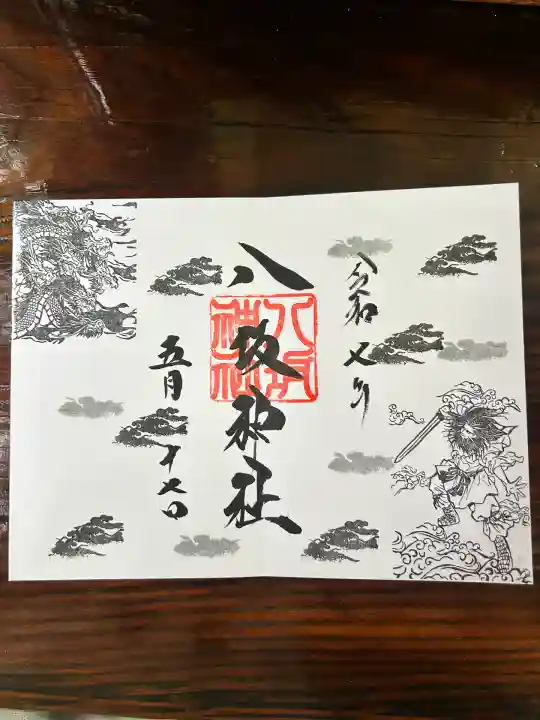 令和七年
八坂神社
八坂神社
五月十七日